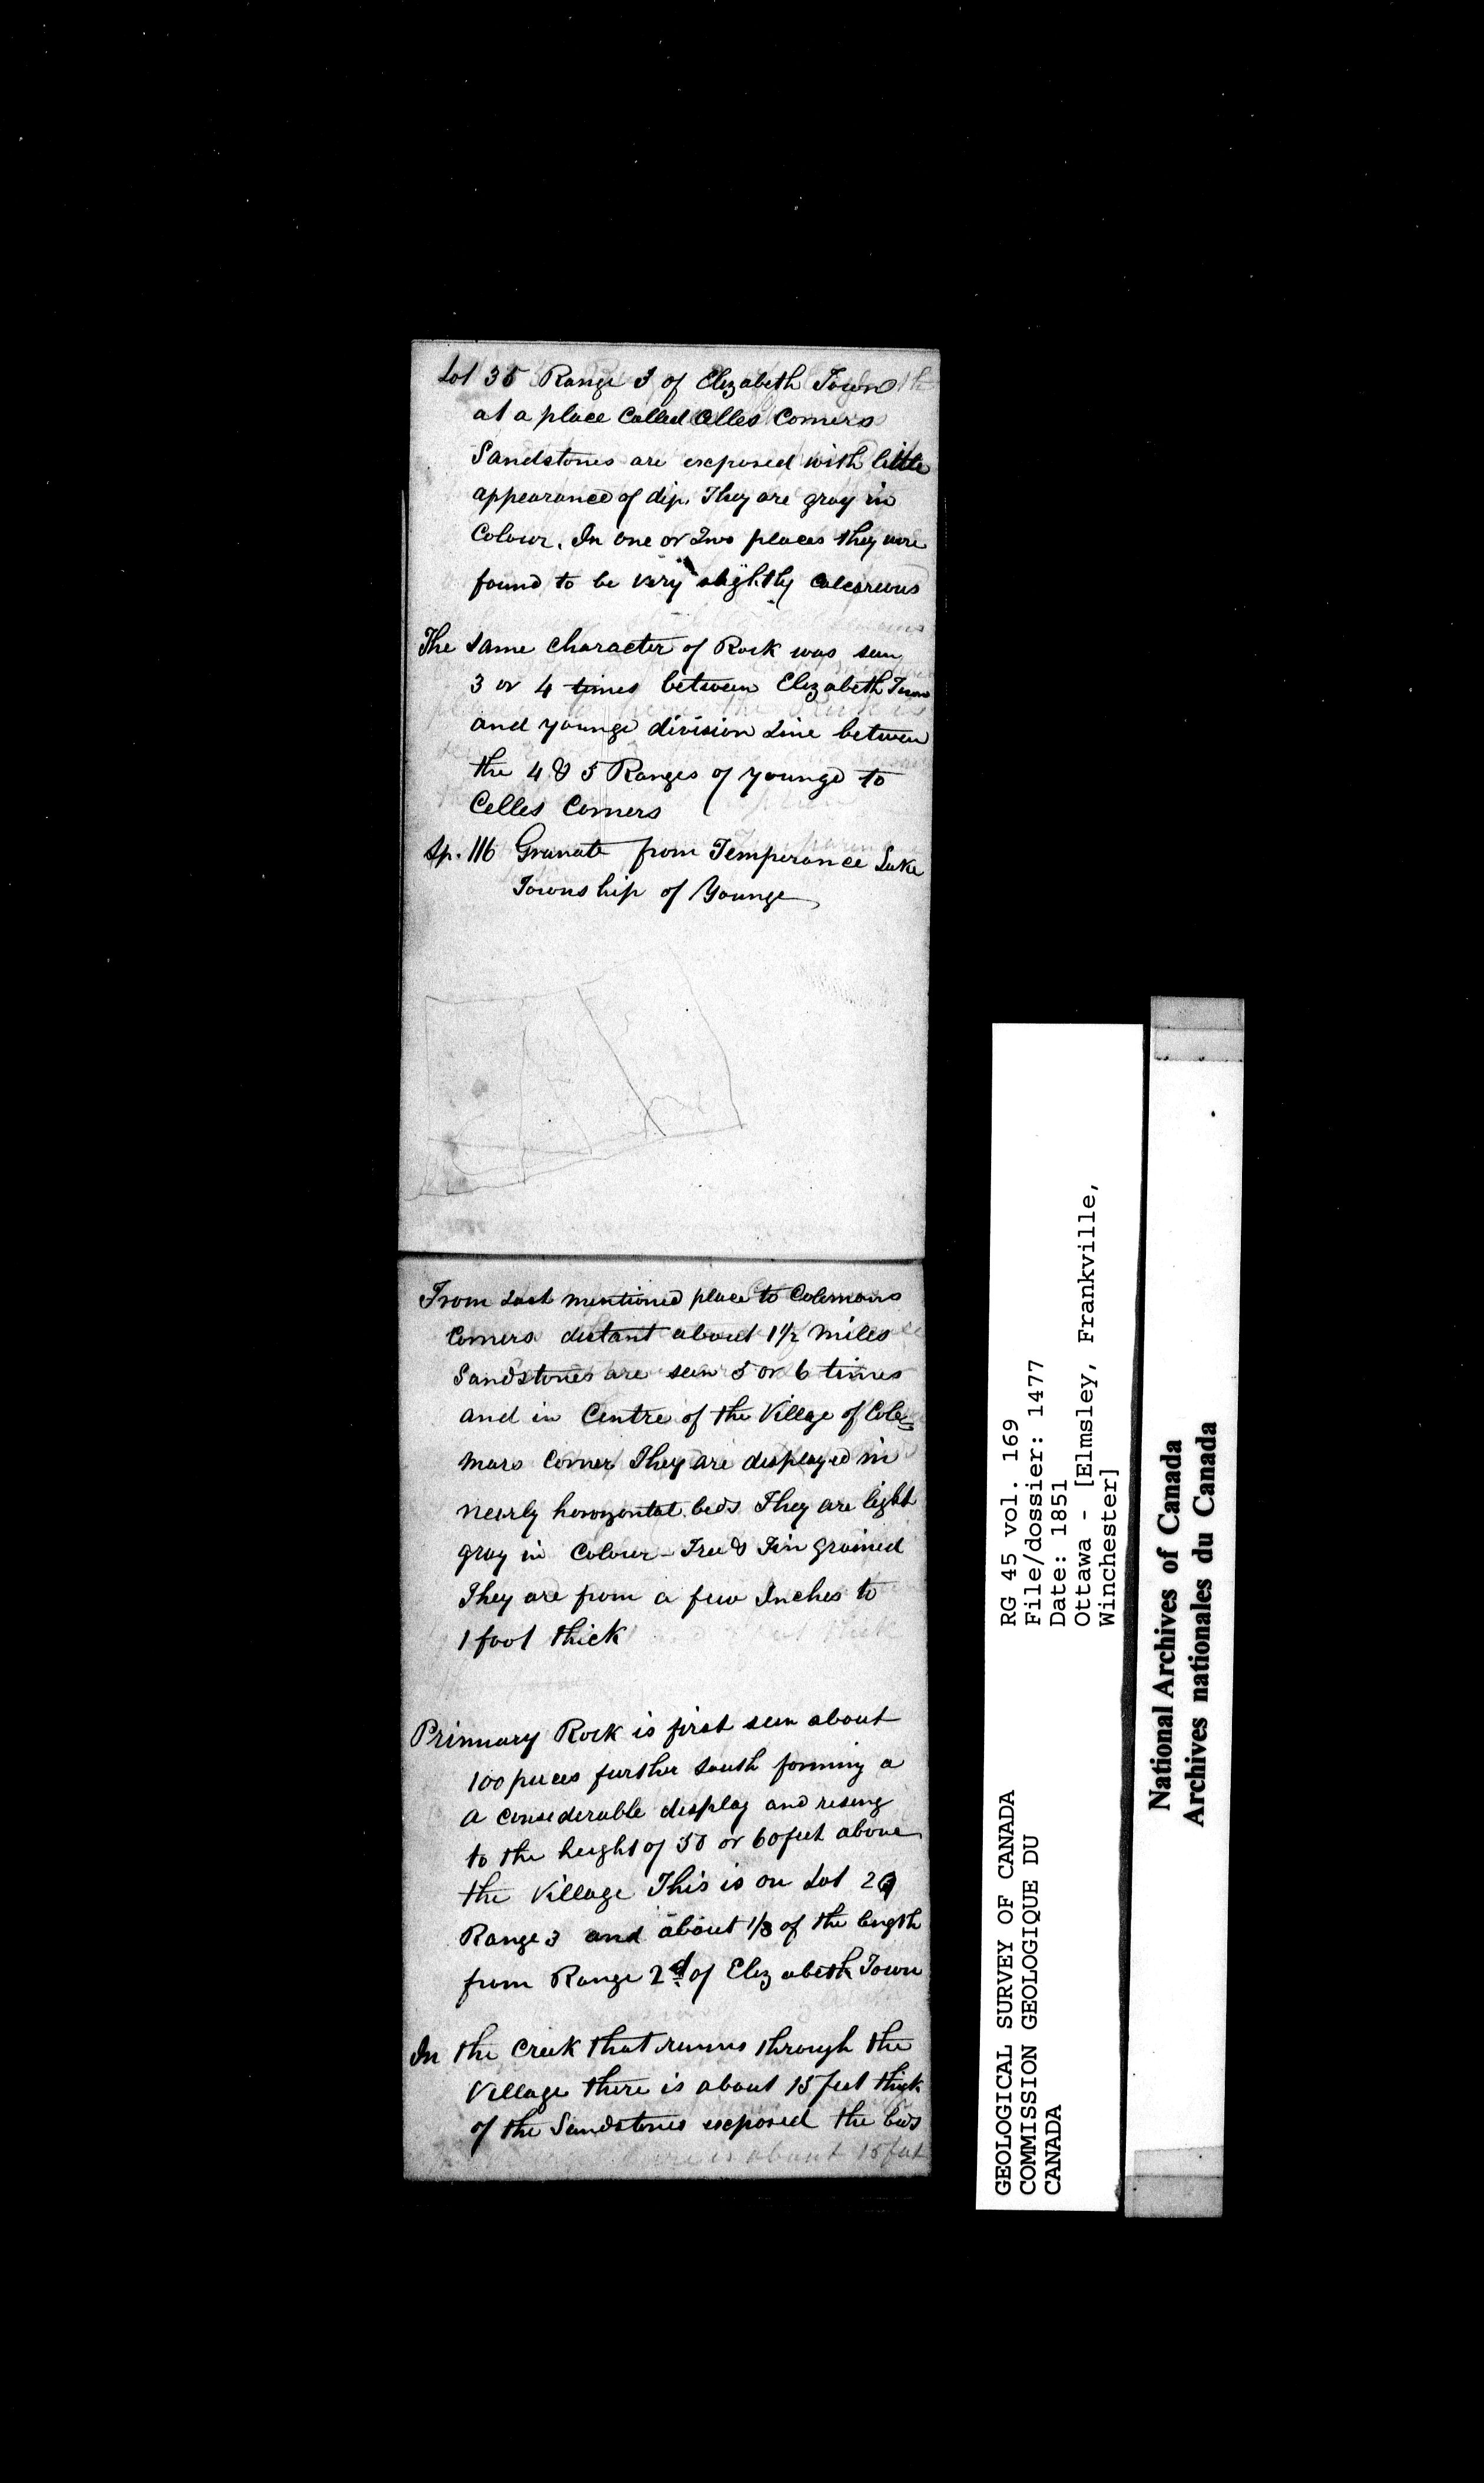 Lot 35 Range 3 of Elizabeth Town
at a place Called Celles Corners
Sandstones are exposed with little
appearance of dip. They are gray in
Colour. In one or Two places they were
found to be very slightly Calcareous
The same character of Rock was seen
3 or 4 times between Elizabeth Town
and younge division Line between
the 4 & 5 Ranges of younge to
Celles Corners
Sp. 116 Granate from Temperance Lake
Township of Younge
From Last mentioned place to Colemans
Corners distant about 1 1/2 miles
Sandstones are seen 5 or 6 times
and in Centre of the Village of Cole=
mans Corner They are displayed in
nearly horozontal beds They are light
gray in Colour - Free & Fin grained
They are from a few Inches to
1 foot thick
Primary Rock is first seen about
100 paces further South forming a
a considerable display and rising
to the height of 50 or 60 feet above
the Village This is on Lot
Range 3 and about 1/3 of the length
from Range 2d of Elizabeth Town
In the Creek that runns through the
Village there is about 15 feet thick
of the Sandstones exposed the beds
GEOLOGICAL SURVEY OF CANADA
COMMISSION GEOLOGIQUE DU
CANADA
RG 45 vol. 169
File/dossier: 1477
Date: 1851
Ottawa - [Elmsley, Frankville,
Winchester]
National Archives of Canada
Archives nationales du Canada